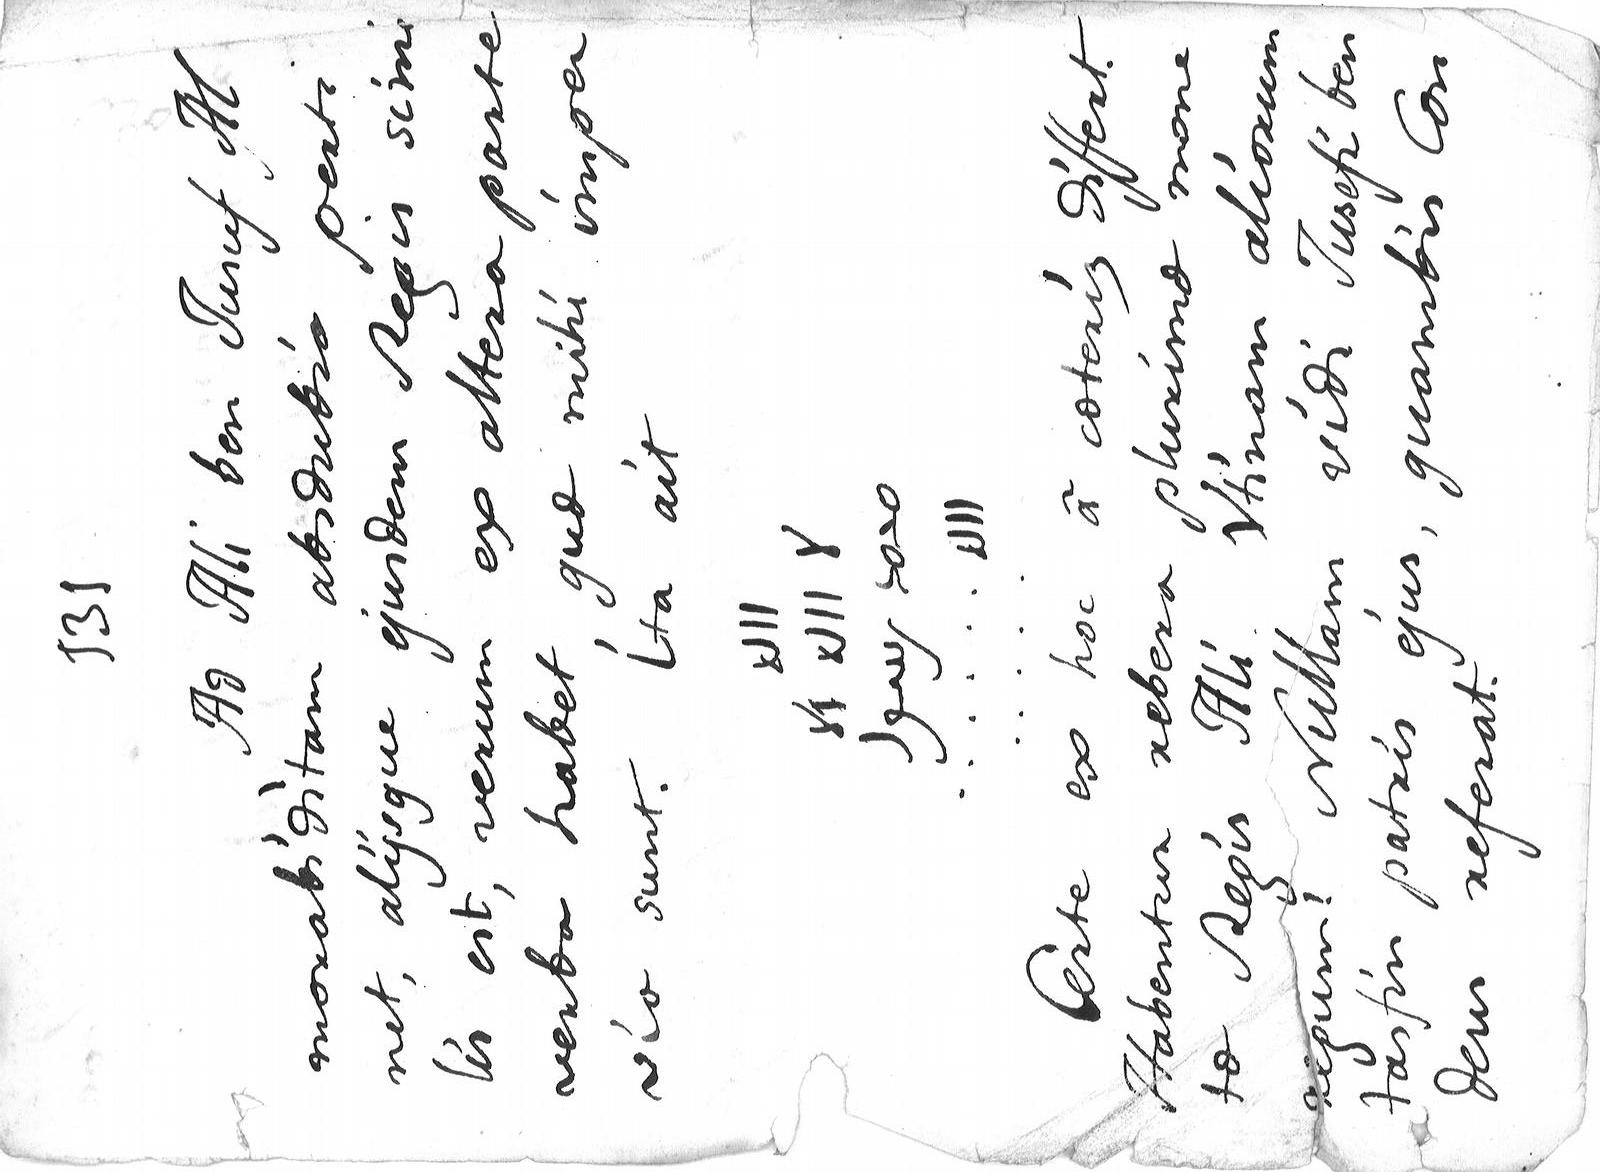 131
Ad Ali ben Jusuf Al
morabiditam absdubio perti
net, alijsque ejusdem Regis simi
lis est, verum ex altera parte
verba habet quæ mihi imper
via sunt. Ita ait
Certe ex hoc à cæteris differt.
Habentur rebera plurimæ mone
tæ Regis Ali Utinam aliorum
regum! Nullam vidi Jusefi ben
tasfin patris ejus, quambis Con
deus referat.